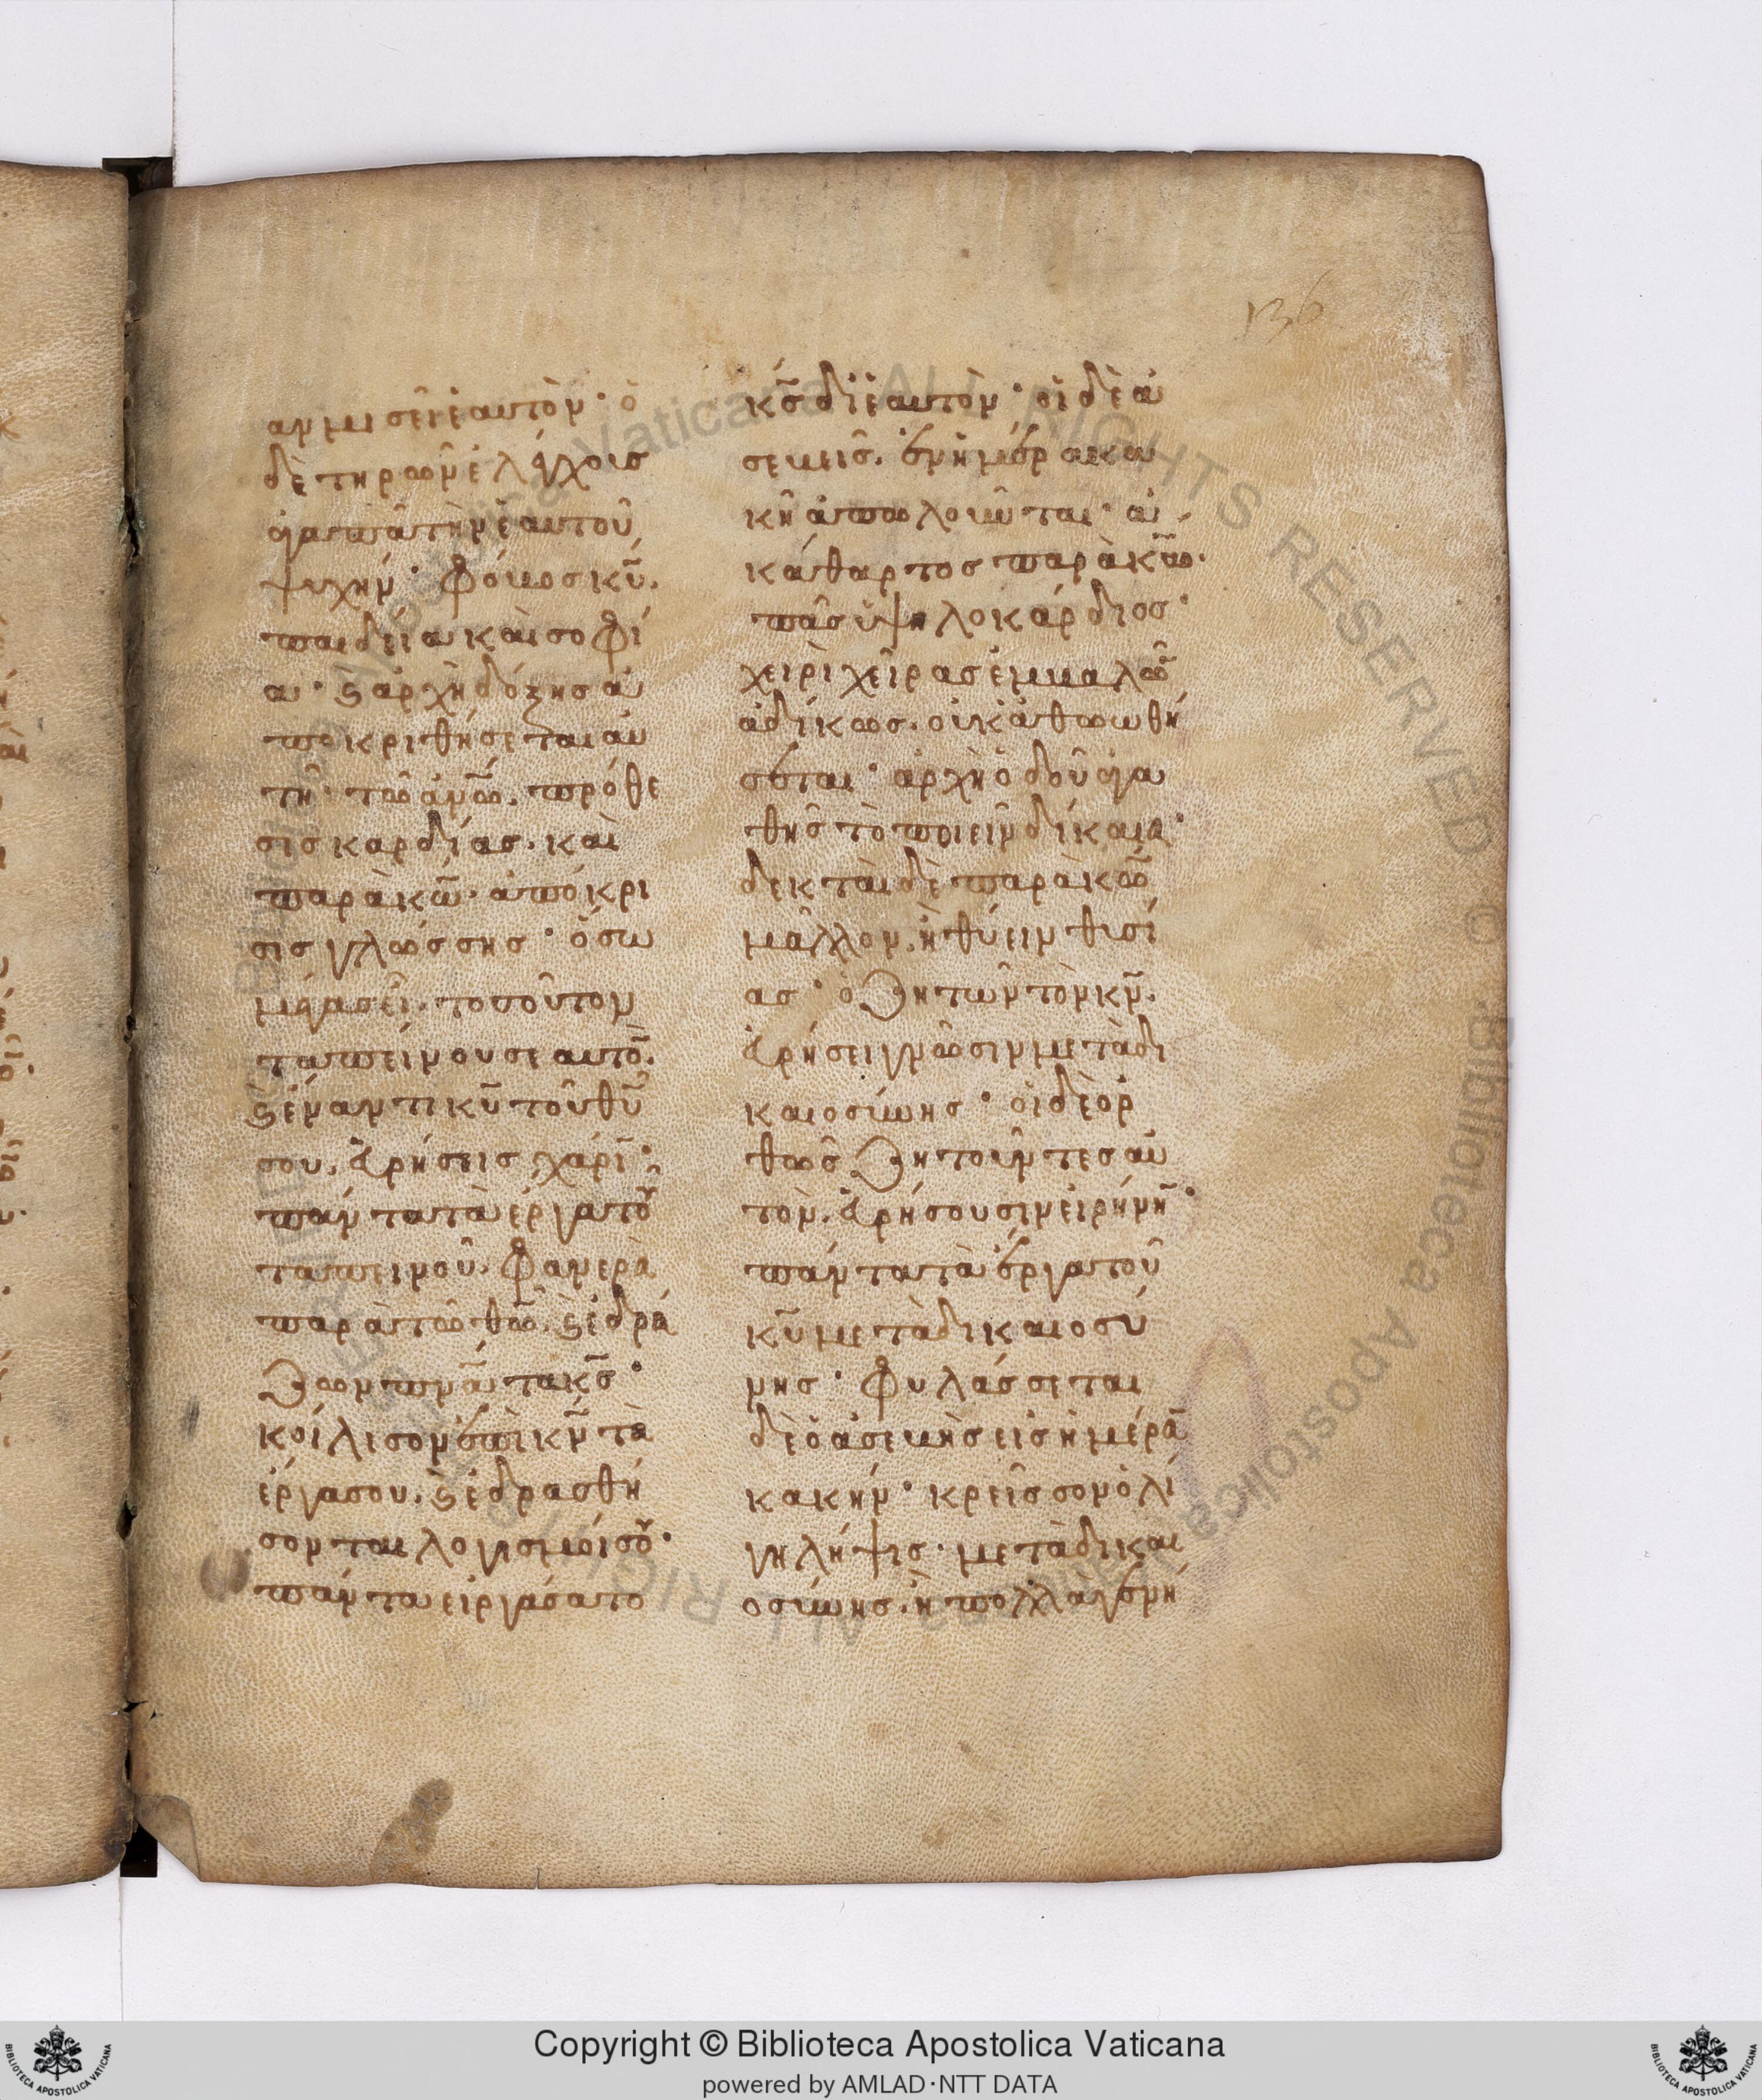 136
αν μισεῖ ἑαυτὸν· ὁ
δὲ τηρῶν ἐλέγχους
ἀγαπᾶ τὴν ἑαυτοῦ
ψυχήν· φόβος κ̅υ̅.
παιδεία καὶ σοφί
α· ϗ ἀρχὴ δόξης ἀ
ποκριθήσεται αὐ
τῆ· τῶ ἀν̅ω̅. πρόθε
σις καρδίας. καὶ
παρὰ κ̅ω̅. ἀπόκρι
σις γλώσσης· ὅσω
μέγας εἶ. τοσοῦτον
ταπείνου σεαυτὸ̅.
ϗ ἔναντι κ̅υ̅ τοῦ θ̅υ̅
σου. εὑρήσεις χάρι̅·
πάντα τὰ ἔργα τοῦ
ταπεινοῦ. φανερὰ
παρὰ τῶ θ̅ω̅. ϗ ἑδρά
ζων πν̅α̅τα κ̅ς̅·
κύλισον ἐπὶ κ̅ν̅ τὰ
ἔργα σου. ϗ ἑδρασθή
σονται λογισμοί σου·
πάντα εἰργάσατο
κ̅ς̅ δι' ἑαυτὸν· οἱ δὲ ἀ
σεβεῖς. ἐν ἡμέρα κα
κῆ ἀπολοῦνται· ἀ
κάθαρτος παρὰ κ̅ω̅.
πᾶς ὑψηλοκάρδιος·
χειρὶ χεῖρας ἐμβαλῶ̅
ἀδίκως. οὐκ ἀθωωθή
σεται· ἀρχὴ ὁδοῦ ἀγα
θῆς τὸ ποιεῖν δίκαια·
δεκτὰ δὲ παρὰ κ̅ω̅
μᾶλλον. ἢ θύειν θυσί
ας· ὁ ζητῶν τὸν κ̅ν̅.
εὑρήσει γνῶσιν μετὰ δι
καιοσύνης· οἱ δὲ ὀρ
θῶς ζητοῦντες αὐ
τὸν. εὑρήσουσιν εἰρήνη̅·
πάντα τὰ ἔργα τοῦ
κ̅υ̅ μετὰ δικαιοσύ
νης· φυλάσσεται
δὲ ὁ ἀσεβὴς εἰς ἡμέρα̅
κακήν· κρεῖσσον ὀλί
γη λῆψις. μετὰ δικαι
οσύνης. ἢ πολλὰ γενή
Copyright © Biblioteca Apostolica Vaticana
powered by AMLAD·NTT DATA